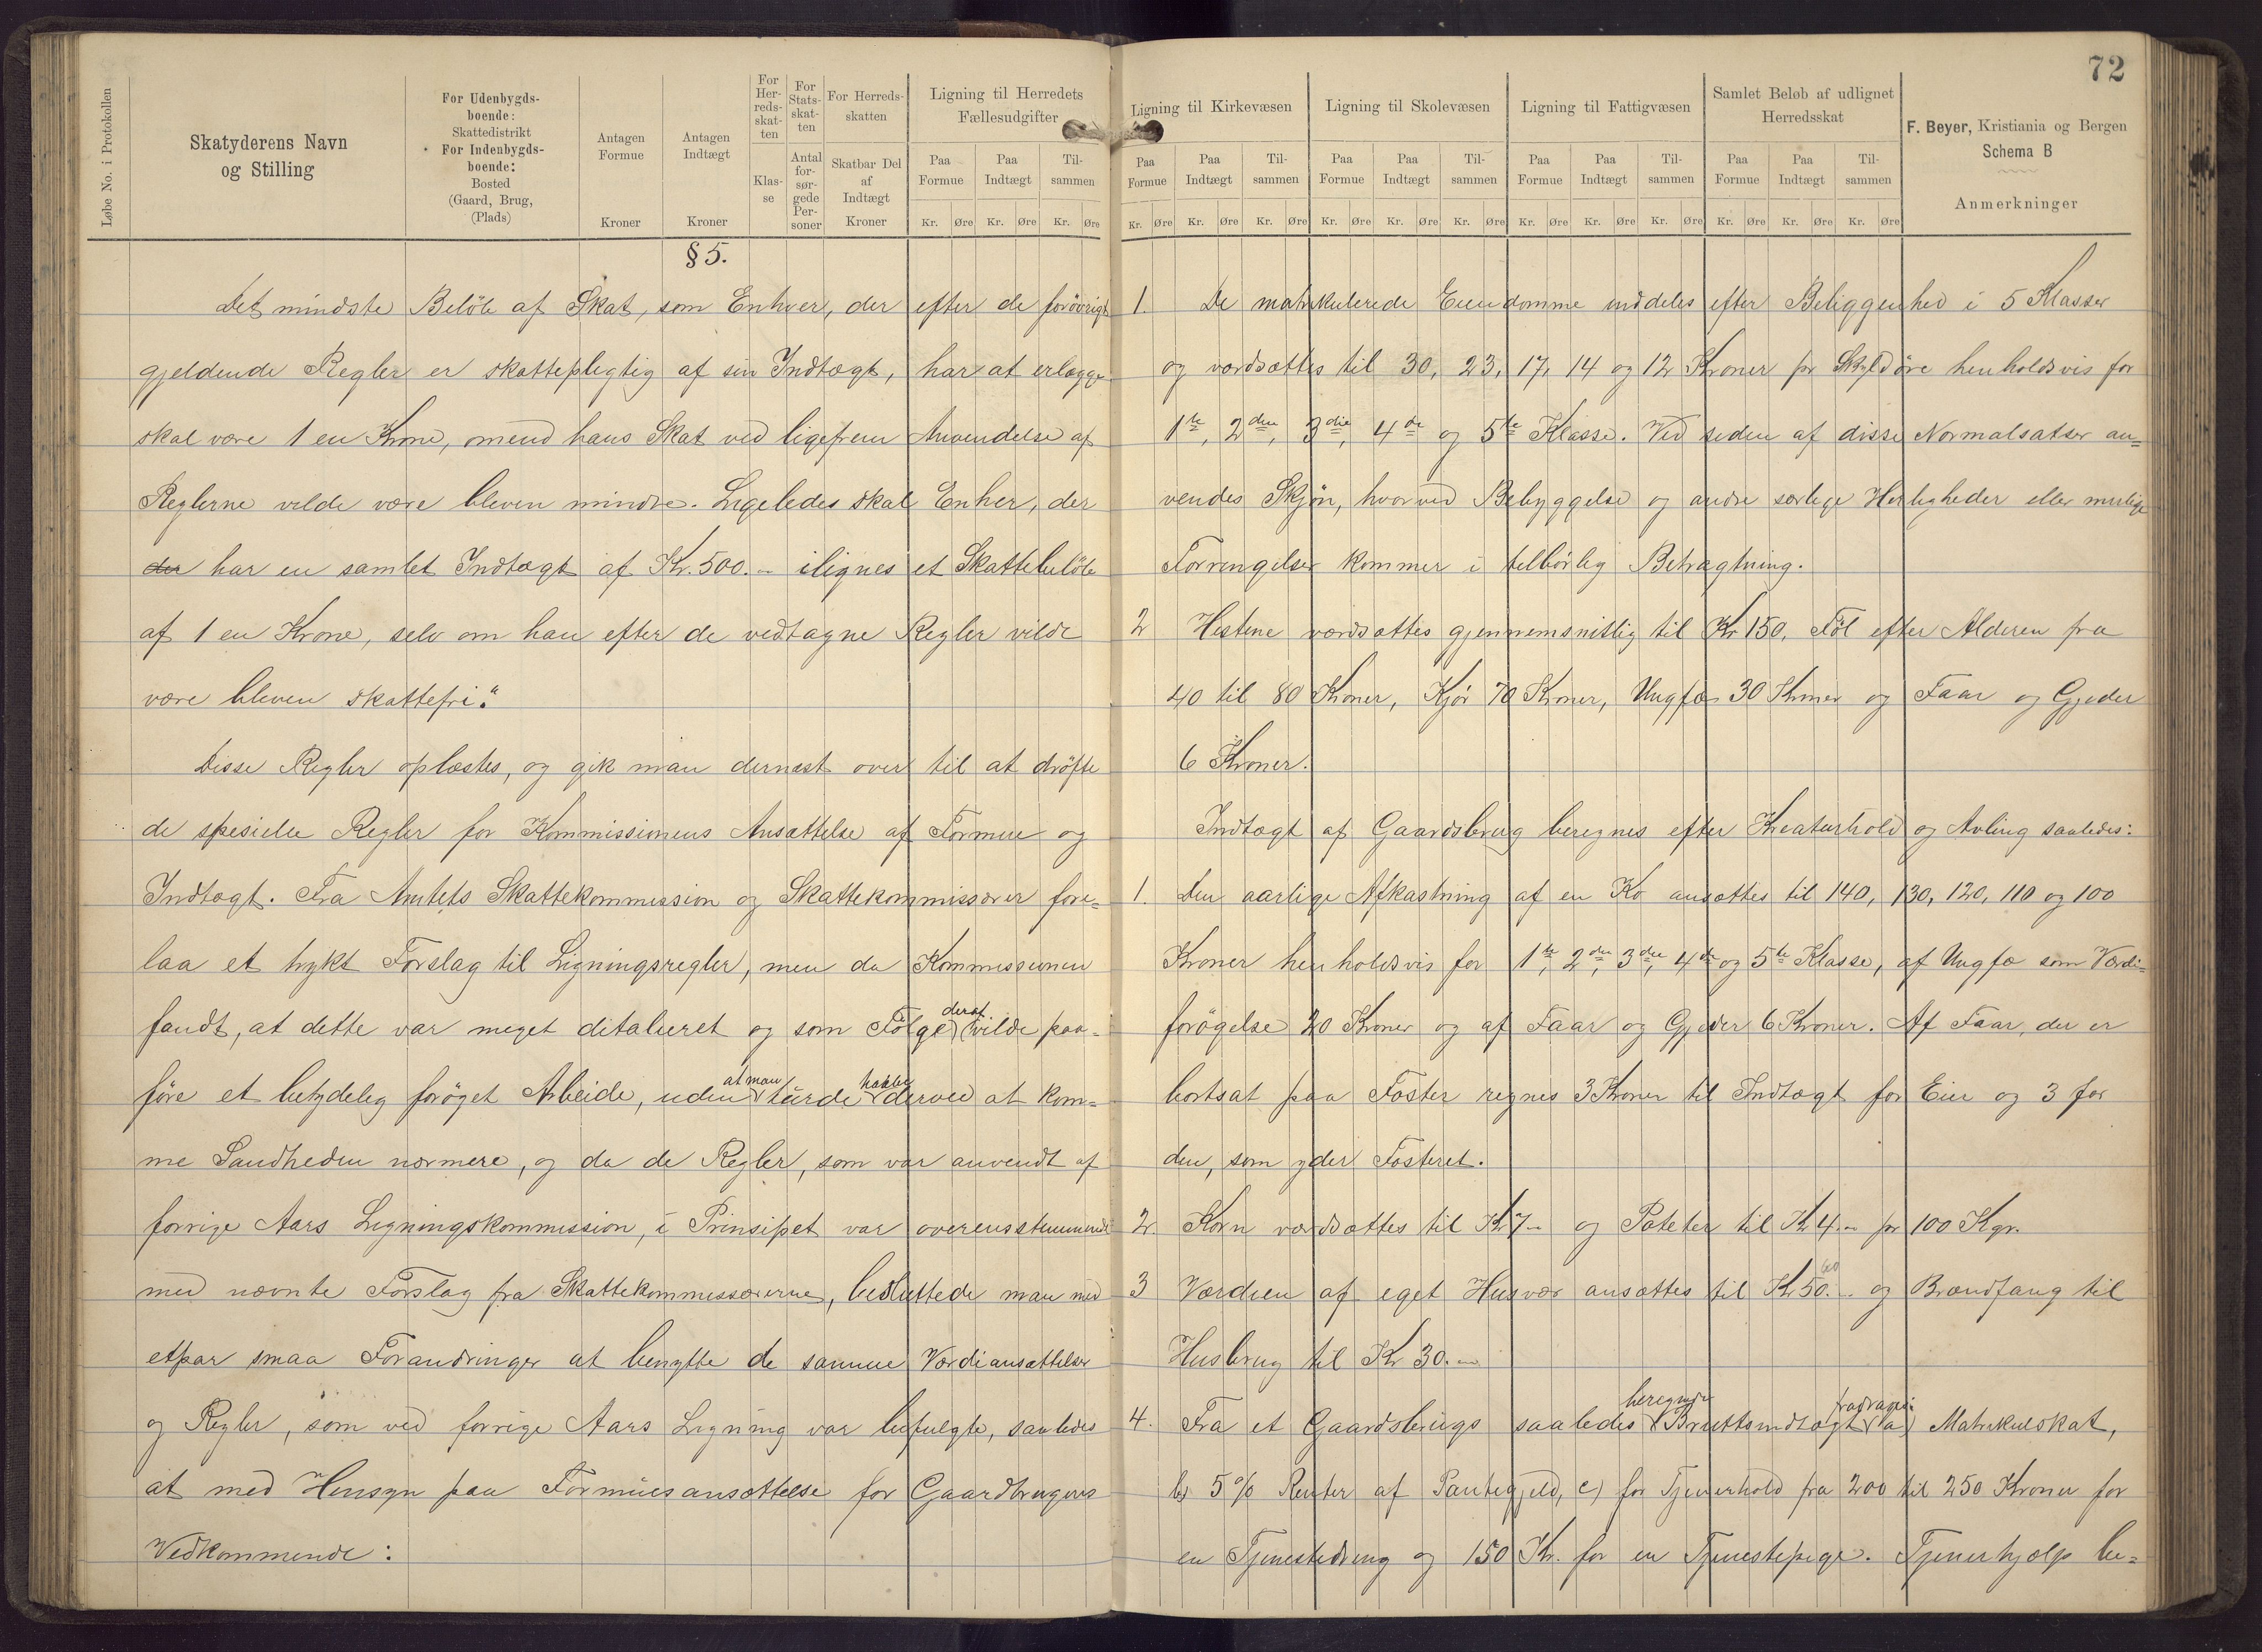 72
Løbe No. i Protokollen
Skatyderens Navn
og Stilling
For Udenbygds-
boende:
Skattedistrikt
For Indenbygds-
boende:
Bosted
(Gaard, Brug,
(Plads)
Antagen
Formue
Kroner
Antagen
Indtægt
Kroner
For
Her-
reds-
skat-
ten
Klas-
se
For
Stats-
skat-
ten
Antal
for-
sør-
gede
Per-
soner
For Herreds-
skatten
Skatbar Del
af
Indtægt
Kroner
Ligning til Herredets
Fællesudgifter
Paa Formue Paa Indtægt Til-sammen
Kr. Øre Kr. Øre Kr. Øre
§ 5.
Det mindste Beløb af Skat, som Enhver, der efter de forøvrigt
gjeldende Regler er skattepligtig af sin Indtægt, har at erlægge
skal være 1 en Krone, omend hans Skat ved ligefrem Anvendelse af
Reglerne vilde være bleven mindre. Ligeledes skal Enher, der
der har en samlet Indtægt af Kr. 500.- ilignes et Skattebeløb
af 1 en Krone, selv om han efter de vedtagne Regler vilde
være bleven skattefri."
Disse Regler oplæstes, og gik man dernæst over til at drøfte
de spesielle Regler for Kommissionens Ansættelse af Formue og
Indtægt. Fra Amtets Skattekommission og Skattekommissærer fore-
laa et trykt Forslag til Ligningsregler, men da Kommissionen
fandt, at dette var meget ditalieret og som Følge deraf vilde paa-
føre et betydelig forøget Arbeide, uden at man turde haabe derved at kom-
me Sandheden nærmere, og da de Regler, som var anvendt af
forrige Aars Ligningskommission, i Prinsipet var overensstemmende
med nævnte Forslag fra Skattekommissærerne, besluttede man med
etpar smaa Forandringer at benytte de samme Værdiansættelser
og Regler, som ved forrige Aars Ligning var befulgte, saaledes
at med Hensyn paa Formuesansættelse for Gaardbrugeres
Vedkommende:
Ligning til Kirkevæsen
Paa Formue Paa Indtægt Til-sammen
Kr. Øre Kr. Øre Kr. Øre
Ligning til Skolevæsen
Paa Formue Paa Indtægt Til-sammen
Kr. Øre Kr. Øre Kr. Øre
Ligning til Fattigvæsen
Paa Formue Paa Indtægt Til-sammen
Kr. Øre Kr. Øre Kr. Øre
Samlet Beløb af udlignet
Herredsskat
Paa Formue Paa Indtægt Til-sammen
Kr. Øre Kr. Øre Kr. Øre
F. Beyer, Kristiania og Bergen
Schema B
Anmerkninger
1. De matrikulerede Eiendomme inddeles efter Beliggenhed i 5 Klasser
og værdsættes til 30, 23, 17, 14 og 12 Kroner pr Skyldøre henholdsvis for
1te, 2den, 3die, 4de og 5te Klasse. Ved siden af disse Normalsatser an-
vendes Skjøn, hvorved Bebyggelse og andre særlige Herligheder eller mulige
Forringelser kommer i tilbørlig Betragtning.
2 Hestene værdsættes gjennemsnitlig til Kr 150, Føl efter Alderen fra
40 til 80 Kroner, Kjør 70 Kroner, Ungfæ 30 Kroner og Faar og Gjeder
6 Kroner.
Indtægt af Gaardsbrug beregnes efter Kreaturhold og Avling saaledes:
1. Den aarlige Afkastning af en Ko ansættes til 140, 130, 120, 110 og 100
Kroner henholdsvis for 1te, 2den, 3die, 4de og 5te Klasse, af Ungfæ som Værdi-
forøgelse 20 Kroner og af Faar og Gjeder 6 Kroner. Af Faar, der er
bortsat paa Foster regnes 3 Kroner til Indtægt for Eier og 3 for
den, som yder Fosteret.
2. Korn værdsættes til Kr 7.- og Poteter til Kr 4.- pr 100 Kgr.
3 Værdien af eget Husvær ansættes til Kr 50.- og Brændfang til
Husbrug til Kr 30.-
4. Fra et Gaardsbrugs saaledes beregnede Bruttoindtægt fradrages: a) Matrikulskat,
b) 5% Renter af Pantegjeld, c) for Tjenerhold fra 200 til 250 Kroner for
en Tjenestedreng og 150 Kr. for en Tjenestepige. Tjenerhjælp be-